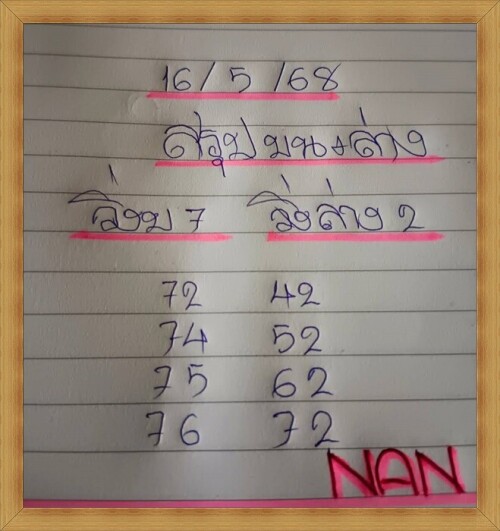 16/5/68
สรุปบน+ล่าง
วิ่งบน 7 วิ่งล่าง 2
72 42
74 52
75 62
76 72
NAN